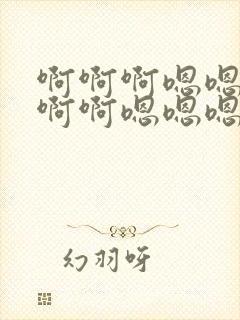 啊啊啊嗯嗯
啊啊嗯嗯嗯
幻羽呀